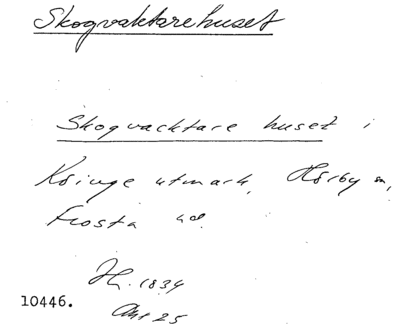 Skogvaktarehuset
Skogvacktare huset i
Köinge utmark, Hörby sn,
Frosta hd.
Hf. 1834
Akt 25
10446.